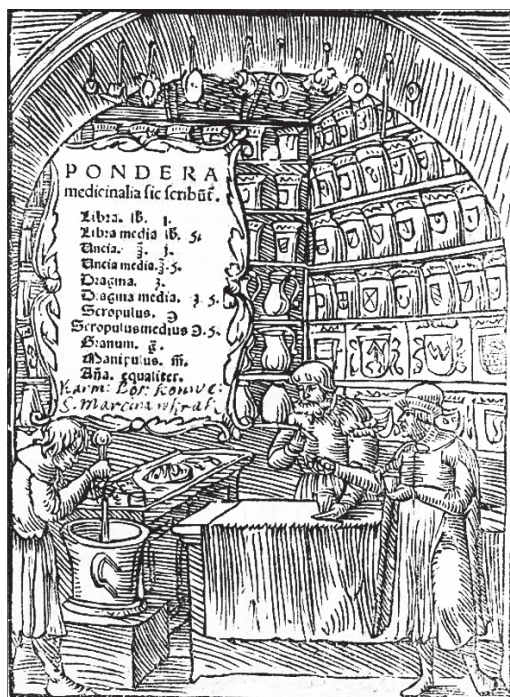 PONDERA
medicinalia sic scribūt.
Libra. lb. j.
Libra media lb. s.
Uncia. ℥. j.
Uncia media. ℥. s.
Dragma. ʒ.
Dragma media. ʒ. s.
Scropulus. ℈
Scropulus medius ℈. s.
Granum. g̃.
Manipulus. m̃.
Aña. equaliter.
Karm:
S. Marcina